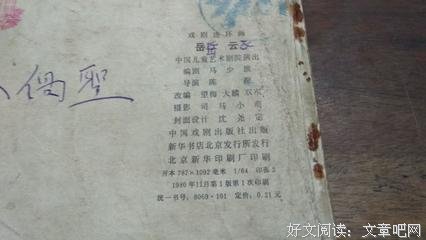 戏剧连环画
岳云
中国儿童艺术剧院演出
编剧 马少波
导演 陈
改编 望梅 大麟 双承
摄影 司马小萌
封面设计 沈尧定
中国戏剧出版社出版
新华书店北京发行所发行
北京新华印刷厂印刷
开本 787×1092 毫米 1/64 印张2
1980年11月第1版第1次印刷
统一书号：8069·101 定价：0.21元
偈聖
好文阅读：文章吧网